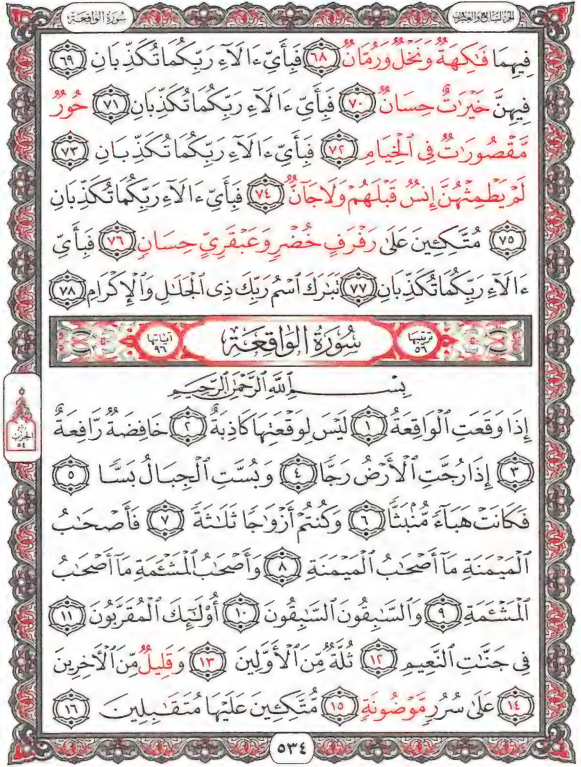 الجزء السابع والعشرون
سُورَةُ الوَاقِعَةِ
فِيهِمَا فَٰكِهَةٌ وَنَخْلٌ وَرُمَّانٌ ٦٨ فَبِأَيِّ ءَالَآءِ رَبِّكُمَا تُكَذِّبَانِ ٦٩
فِيهِنَّ خَيْرَٰتٌ حِسَانٌ ٧٠ فَبِأَيِّ ءَالَآءِ رَبِّكُمَا تُكَذِّبَانِ ٧١ حُورٌ
مَّقْصُورَٰتٌ فِي ٱلْخِيَامِ ٧٢ فَبِأَيِّ ءَالَآءِ رَبِّكُمَا تُكَذِّبَانِ ٧٣
لَمْ يَطْمِثْهُنَّ إِنسٌ قَبْلَهُمْ وَلَا جَآنٌّ ٧٤ فَبِأَيِّ ءَالَآءِ رَبِّكُمَا تُكَذِّبَانِ
٧٥ مُتَّكِـِٔينَ عَلَىٰ رَفْرَفٍ خُضْرٍ وَعَبْقَرِيٍّ حِسَانٍ ٧٦ فَبِأَيِّ
ءَالَآءِ رَبِّكُمَا تُكَذِّبَانِ ٧٧ تَبَٰرَكَ ٱسْمُ رَبِّكَ ذِي ٱلْجَلَٰلِ وَٱلْإِكْرَامِ ٧٨
ترتيبها ٥٦
سُورَةُ الوَاقِعَةِ
آياتها ٩٦
بِسْمِ ٱللَّهِ ٱلرَّحْمَٰنِ ٱلرَّحِيمِ
إِذَا وَقَعَتِ ٱلْوَاقِعَةُ ١ لَيْسَ لِوَقْعَتِهَا كَاذِبَةٌ ٢ خَافِضَةٌ رَّافِعَةٌ
٣ إِذَا رُجَّتِ ٱلْأَرْضُ رَجًّا ٤ وَبُسَّتِ ٱلْجِبَالُ بَسًّا ٥
فَكَانَتْ هَبَآءً مُّنۢبَثًّا ٦ وَكُنتُمْ أَزْوَٰجًا ثَلَٰثَةً ٧ فَأَصْحَٰبُ
ٱلْمَيْمَنَةِ مَآ أَصْحَٰبُ ٱلْمَيْمَنَةِ ٨ وَأَصْحَٰبُ ٱلْمَشْـَٔمَةِ مَآ أَصْحَٰبُ
ٱلْمَشْـَٔمَةِ ٩ وَٱلسَّٰبِقُونَ ٱلسَّٰبِقُونَ ١٠ أُو۟لَٰٓئِكَ ٱلْمُقَرَّبُونَ ١١
فِي جَنَّٰتِ ٱلنَّعِيمِ ١٢ ثُلَّةٌ مِّنَ ٱلْأَوَّلِينَ ١٣ وَقَلِيلٌ مِّنَ ٱلْءَاخِرِينَ
١٤ عَلَىٰ سُرُرٍ مَّوْضُونَةٍ ١٥ مُّتَّكِـِٔينَ عَلَيْهَا مُتَقَٰبِلِينَ ١٦
٥٣٤